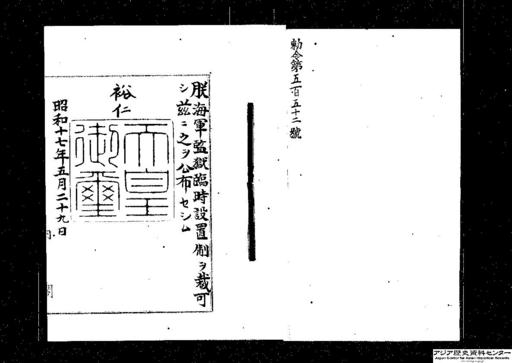 勅令第五百五十二號
朕海軍監獄臨時設置制ヲ裁可
シ茲ニ之ヲ公布セシム
裕仁
天皇
御璽
昭和十七年五月二十九日
アジア歴史資料センター
Japan Center for Asian Historical Records